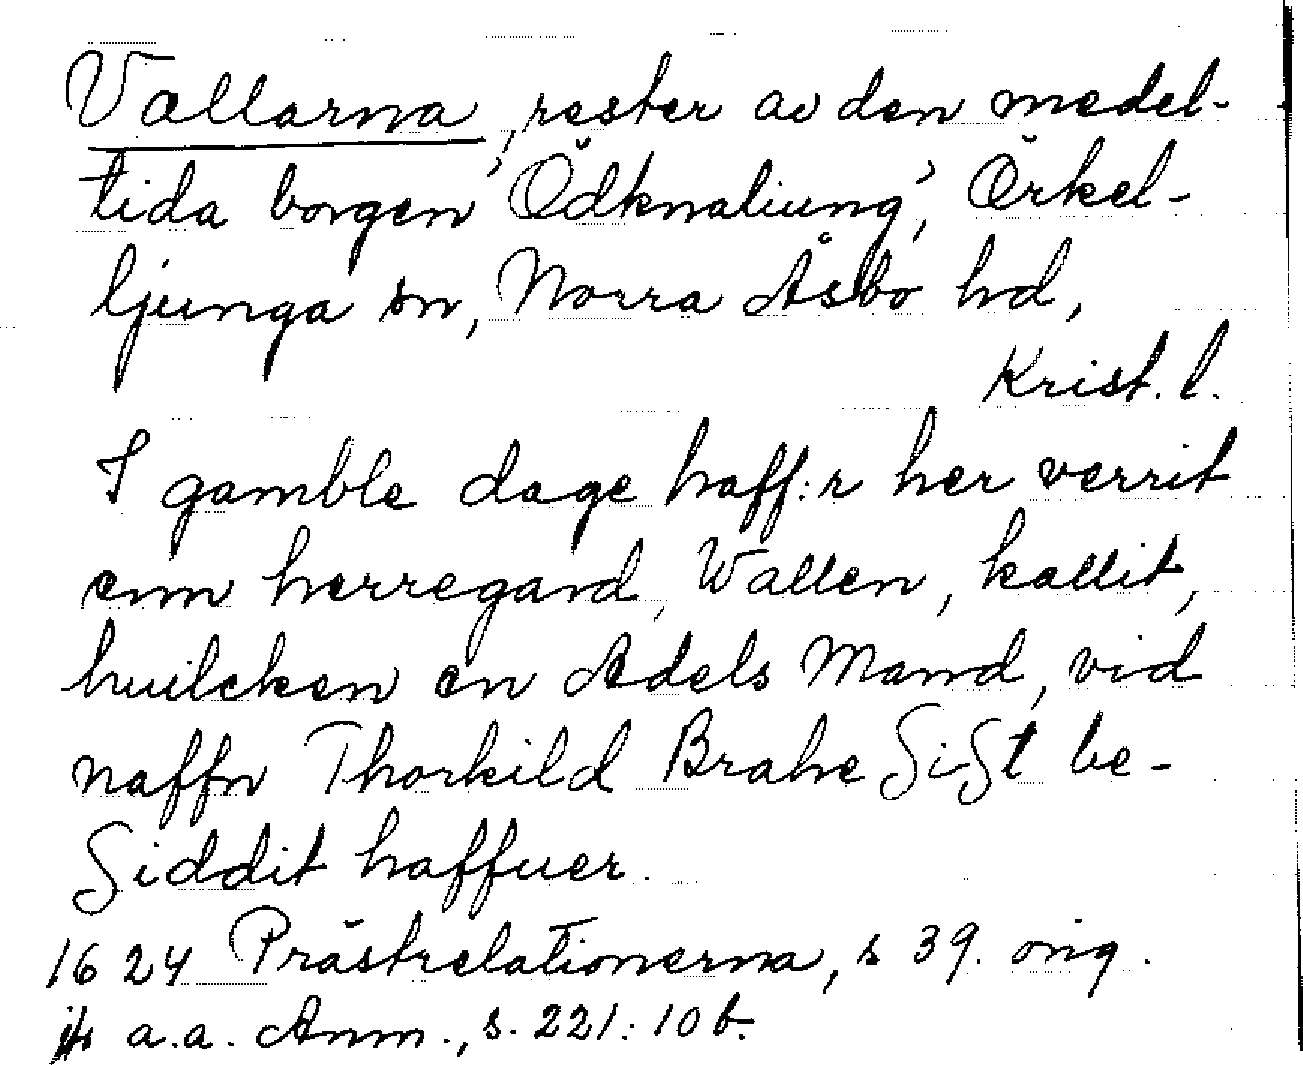 Vallarna, rester av den medel-
tida borgen 'Ödknaliung', Örkel-
ljunga sn, Norra Åsbo hd,
Krist. l.
I gamble dage haff:r her verrit
enn herregard, Wallen, kallit,
huilcken en Adels Mand, vid
naffn Thorkild Brahe Sist be-
Siddit haffuer.
1624 Prästrelationerna, s 39. orig.
jfr a.a. Anm., s. 221: 10 b.